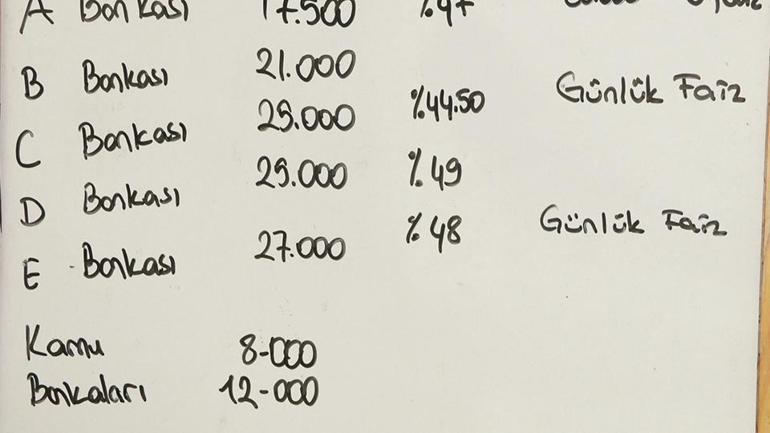 A Bankası 17.500 %47
B Bankası 21.000
C Bankası 25.000 %44.50 Günlük Faiz
D Bankası 25.000 %49
E Bankası 27.000 %48 Günlük Faiz
Kamu 8-000
Bankaları 12-000